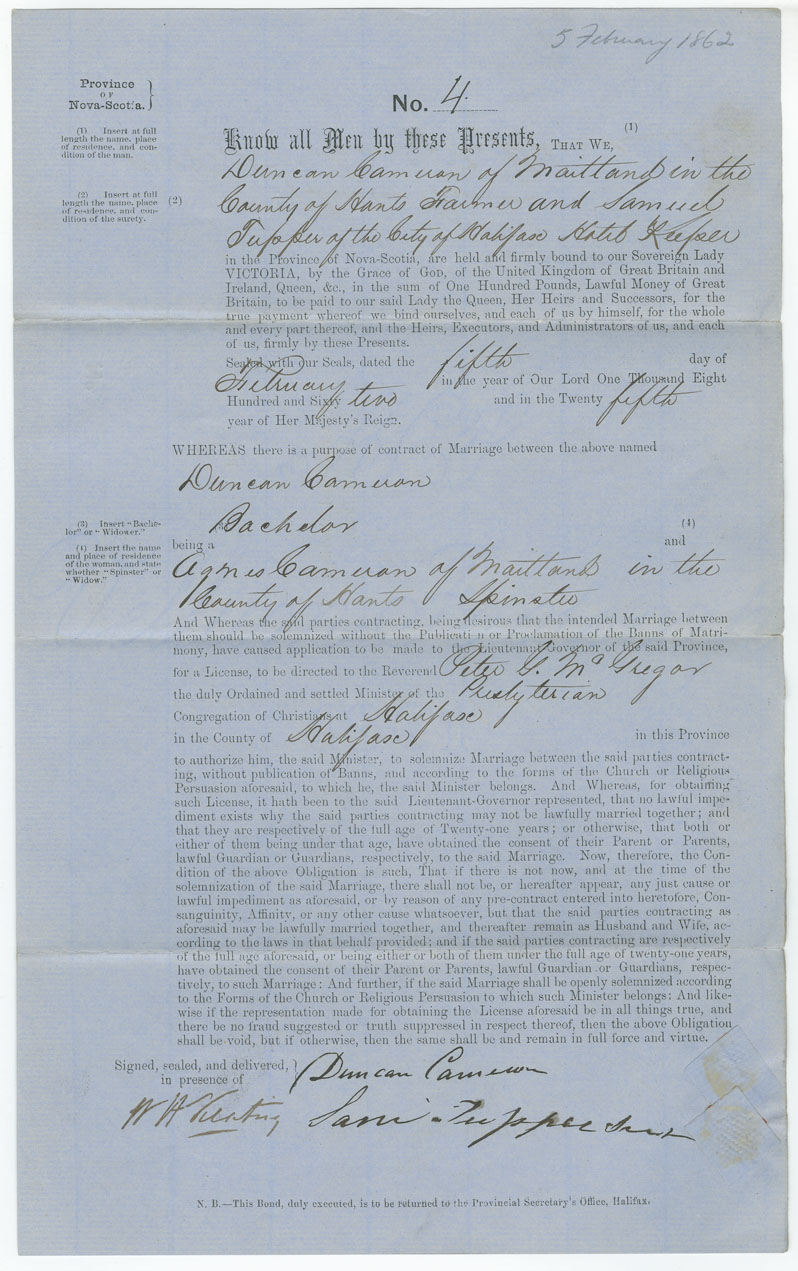 5 February 1862
Province
OF
Nova-Scotia.
No. 4
(1) Insert at full
length the name, place
of residence, and con-
dition of the man.
Know all Men by these Presents, THAT WE, (1)
Duncan Cameron of Maitland in the
(2) Insert at full
length the name, place
of residence, and con-
dition of the surety.
(2) County of Hants Farmer and Samuel
Tupper of the City of Halifax Hotel Keeper
in the Province of Nova-Scotia, are held and firmly bound to our Sovereign Lady
VICTORIA, by the Grace of GOD, of the United Kingdom of Great Britain and
Ireland, Queen, &c., in the sum of One Hundred Pounds, Lawful Money of Great
Britain, to be paid to our said Lady the Queen, Her Heirs and Successors, for the
true payment whereof we bind ourselves, and each of us by himself, for the whole
and every part thereof, and the Heirs, Executors, and Administrators of us, and each
of us, firmly by these Presents.
Sealed with our Seals, dated the fifth day of
February in the year of Our Lord One Thousand Eight
Hundred and Sixty two and in the Twenty fifth
year of Her Majesty's Reign.
WHEREAS there is a purpose of contract of Marriage between the above named
Duncan Cameron
(3) Insert "Bache-
lor" or "Widower."
(4) Insert the name
and place of residence
of the woman, and state
whether "Spinster" or
"Widow."
Bachelor (4)
being a and
Agnes Cameron of Maitland in the
County of Hants Spinster
And Whereas the said parties contracting, being desirous that the intended Marriage between
them should be solemnized without the Publicati n or Proclamation of the Banns of Matri-
mony, have caused application to be made to the Lieutenant Governor of the said Province,
for a License, to be directed to the Reverend Peter G. McGregor
the duly Ordained and settled Minister of the Presbyterian
Congregation of Christians at Halifax
in the County of Halifax in this Province
to authorize him, the said Minister, to solemnize Marriage between the said parties contract-
ing, without publication of Banns, and according to the forms of the Church or Religious
Persuasion aforesaid, to which he, the said Minister belongs. And Whereas, for obtaining
such License, it hath been to the said Lieutenant-Governor represented, that no lawful impe-
diment exists why the said parties contracting may not be lawfully married together; and
that they are respectively of the full age of Twenty-one years; or otherwise, that both or
either of them being under that age, have obtained the consent of their Parent or Parents,
lawful Guardian or Guardians, respectively, to the said Marriage. Now, therefore, the Con-
dition of the above Obligation is such, That if there is not now, and at the time of the
solemnization of the said Marriage, there shall not be, or hereafter appear, any just cause or
lawful impediment as aforesaid, or by reason of any pre-contract entered into heretofore, Con-
sanguinity, Affinity, or any other cause whatsoever, but that the said parties contracting as
aforesaid may be lawfully married together, and thereafter remain as Husband and Wife, ac-
cording to the laws in that behalf provided; and if the said parties contracting are respectively
of the full age aforesaid, or being either or both of them under the full age of twenty-one years,
have obtained the consent of their Parent or Parents, lawful Guardian or Guardians, respec-
tively, to such Marriage: And further, if the said Marriage shall be openly solemnized according
to the Forms of the Church or Religious Persuasion to which such Minister belongs: And like-
wise if the representation made for obtaining the License aforesaid be in all things true, and
there be no fraud suggested or truth suppressed in respect thereof, then the above Obligation
shall be void, but if otherwise, then the same shall be and remain in full force and virtue.
Signed, sealed, and delivered,
in presence of
Duncan Cameron
W H Keating Saml Tupper
N. B.—This Bond, duly executed, is to be returned to the Provincial Secretary's Office, Halifax.